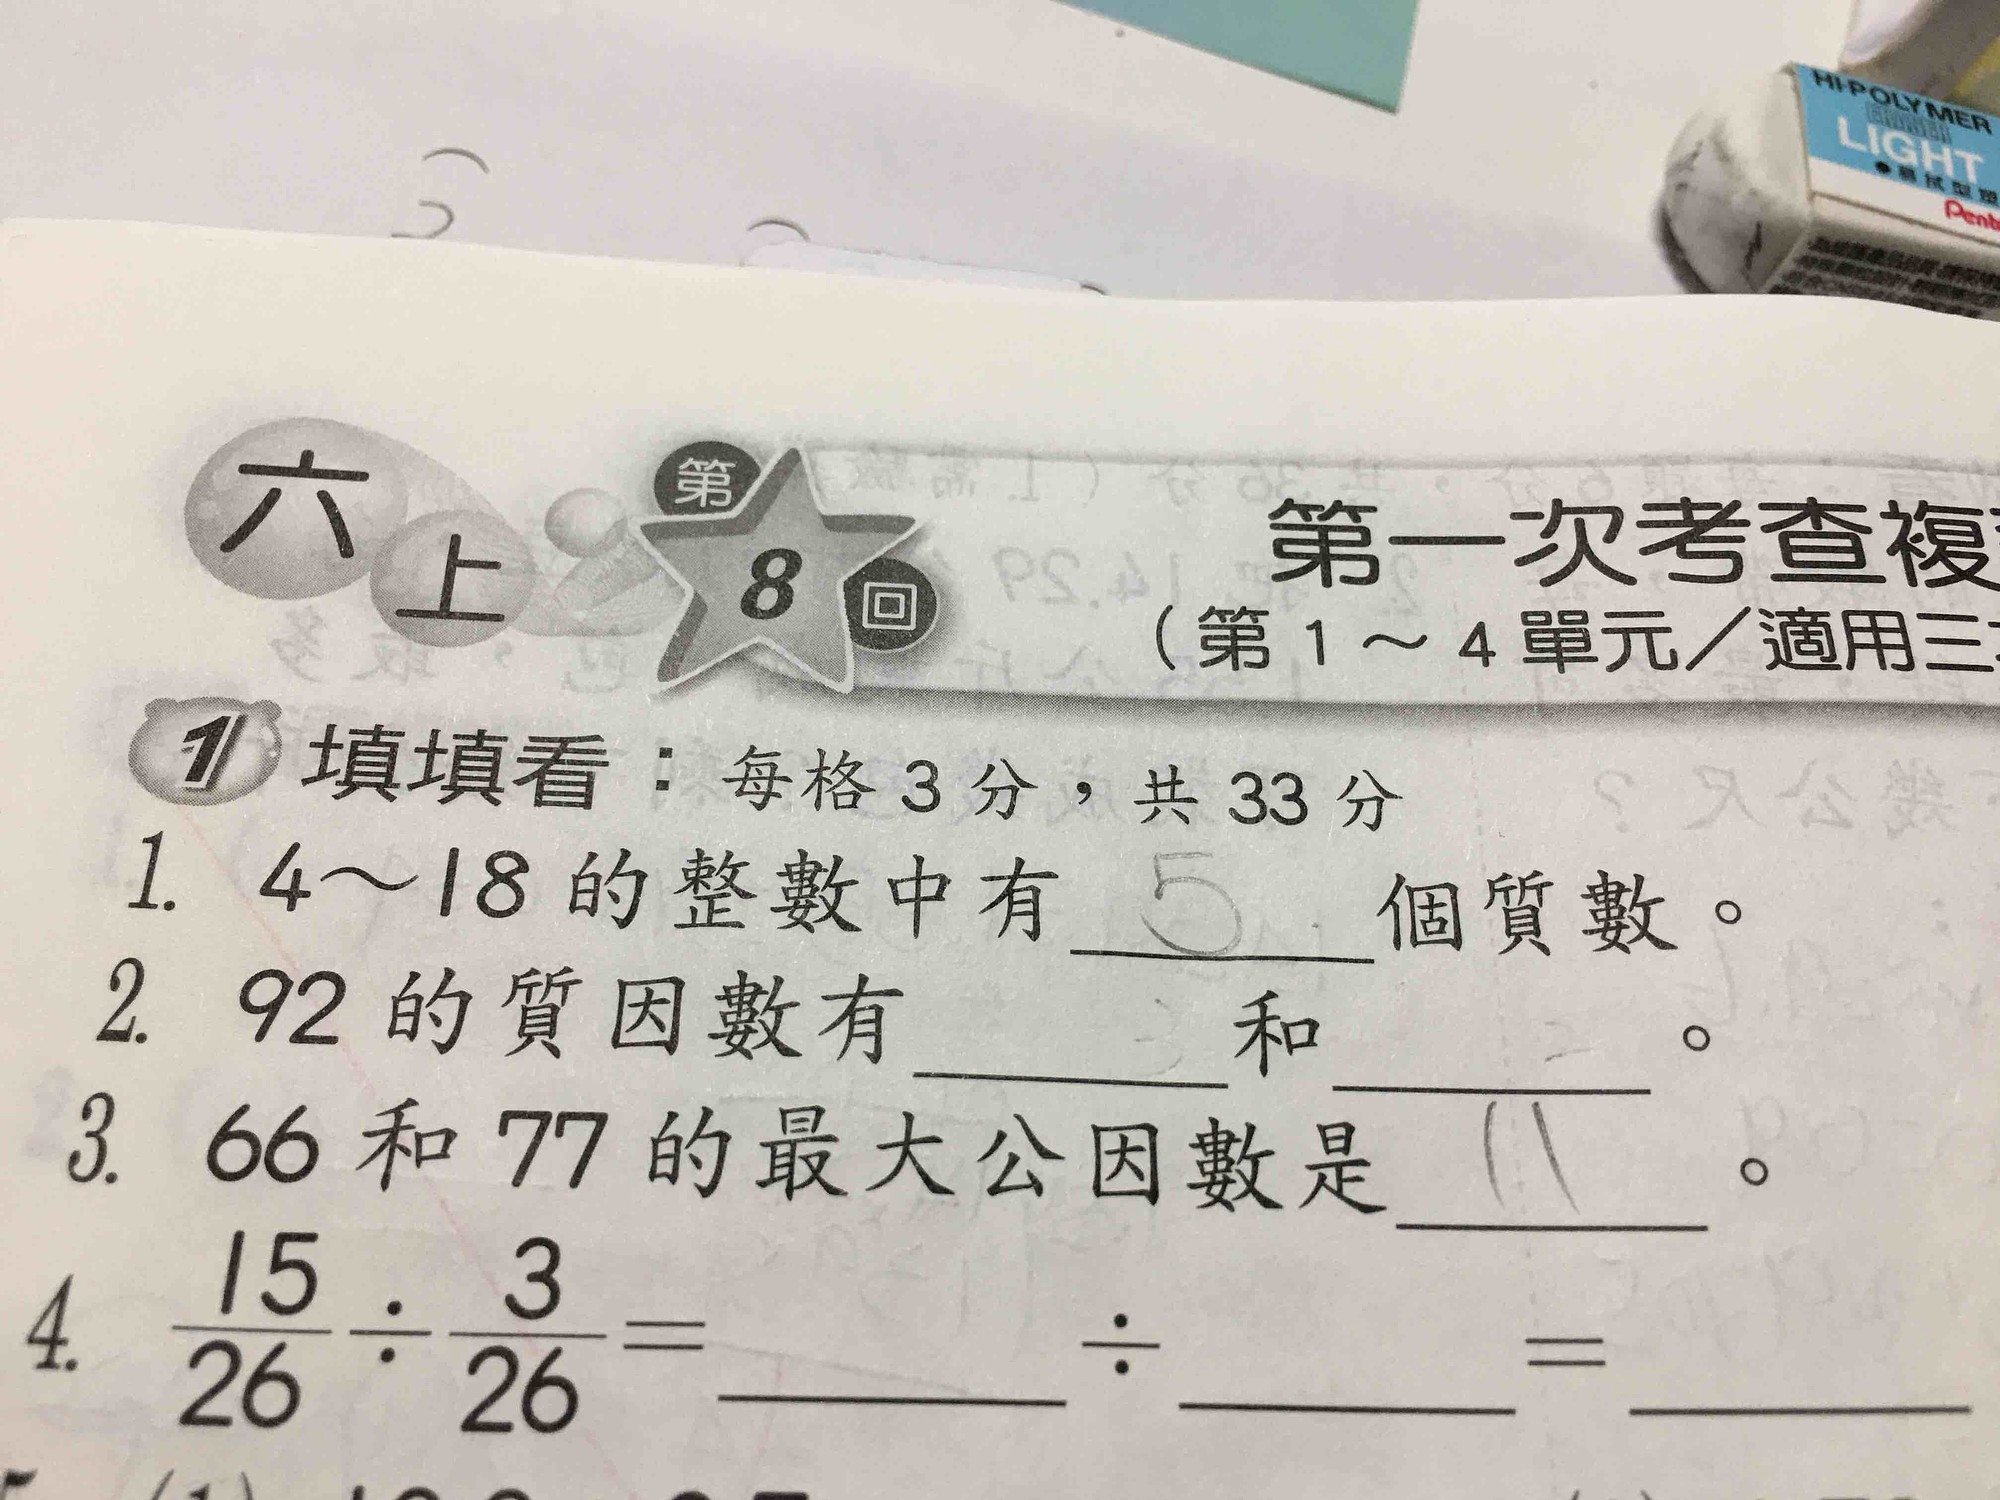 HI-POLYMER
LIGHT
六上
第8回
第一次考查複
(第1～4單元／適用三
1 填填看：每格3分，共33分
1. 4～18的整數中有 5 個質數。
2. 92的質因數有____和____。
3. 66和77的最大公因數是 11 。
4. 15/26÷3/26=____÷____=____